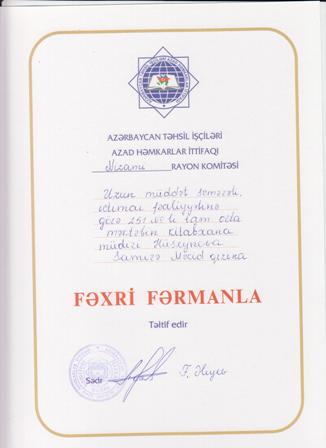 AZƏRBAYCAN TƏHSİL İŞÇİLƏRİ
AZAD HƏMKARLAR İTTİFAQI
Nizami RAYON KOMİTƏSİ
Uzun müddət səmərəli
ictimai fəaliyyətinə
görə 251 №-li tam orta
məktəbin kitabxana
müdiri Hüseynova
Samirə Məcid qızına
FƏXRİ FƏRMANLA
Təltif edir
Sədr